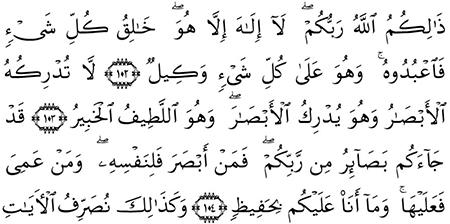 ذَٰلِكُمُ ٱللَّهُ رَبُّكُمْ ۖ لَآ إِلَٰهَ إِلَّا هُوَ ۖ خَٰلِقُ كُلِّ شَىْءٍ
فَٱعْبُدُوهُ ۚ وَهُوَ عَلَىٰ كُلِّ شَىْءٍ وَكِيلٌ ١٠٢ لَّا تُدْرِكُهُ
ٱلْأَبْصَٰرُ وَهُوَ يُدْرِكُ ٱلْأَبْصَٰرَ ۖ وَهُوَ ٱللَّطِيفُ ٱلْخَبِيرُ ١٠٣ قَدْ
جَآءَكُم بَصَآئِرُ مِن رَّبِّكُمْ ۖ فَمَنْ أَبْصَرَ فَلِنَفْسِهِۦ ۖ وَمَنْ عَمِىَ
فَعَلَيْهَا ۚ وَمَآ أَنَا۠ عَلَيْكُم بِحَفِيظٍ ١٠٤ وَكَذَٰلِكَ نُصَرِّفُ ٱلْءَايَٰتِ